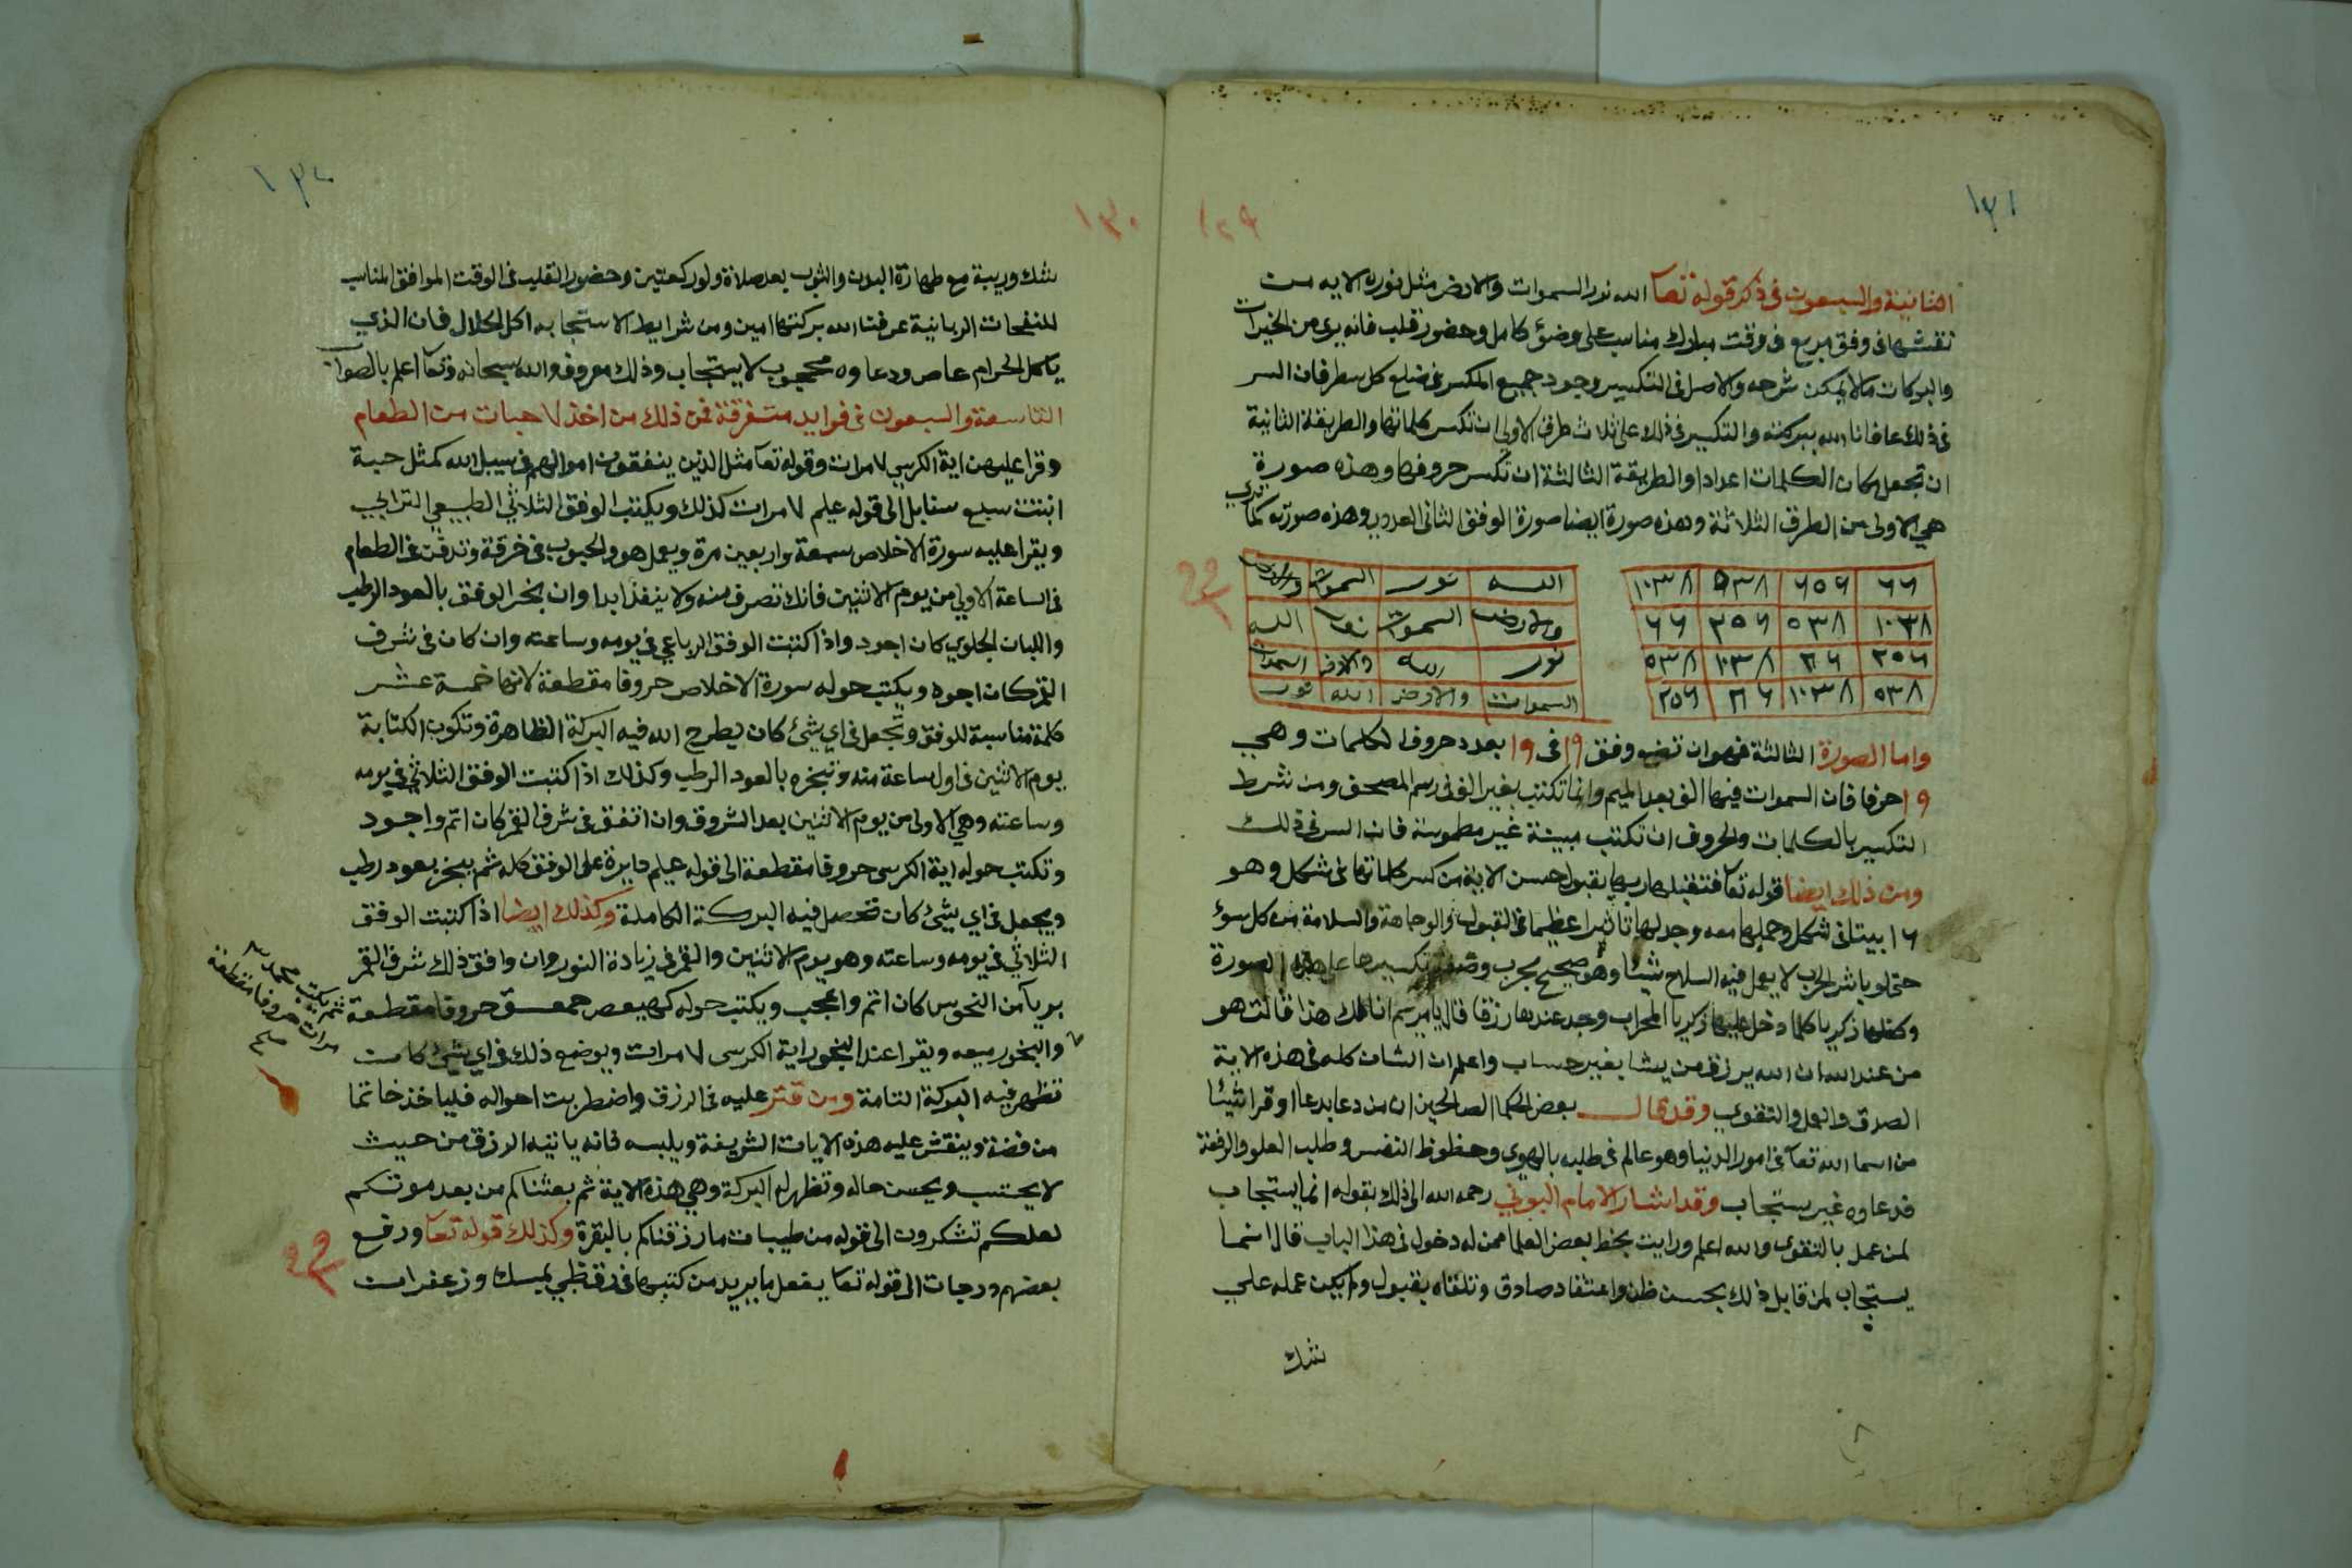 ١٣١
١٢٩
الثانية والسبعون فى ذكر قوله تعا الله نور السموات والارض مثل نوره الايه من
نقشها فى وفق مربع فى وقت مبارك مناسب على وضؤ كامل وحضور قلب فانه يرى من الخيرات
والبركات مالا يمكن شرحه والاصل فى التكسير وجود جميع المكسر فى ضلع كل سطر فان السر
فى ذلك عافانا الله ببركته والتكسير فى ذلك على ثلاث طرف الاولى ان تكسر كلماتها والطريقة الثانية
ان تجعل مكان الكلمات اعدادا والطريقة الثالثة ان تكسر حروفها وهذه صورة
هى الاولى من الطرف الثلاثة وهذه صورة ايضا صورة الوفق الثانى العددى وهذه صورته كما ترى
٦٦ ٢٥٦ ٥٣٨ ١٠٣٨
١٠٣٨ ٥٣٨ ٢٥٦ ٦٦
٢٥٦ ٦٦ ١٠٣٨ ٥٣٨
٥٣٨ ١٠٣٨ ٦٦ ٢٥٦
الله نور السموات والارض
والارض السموات نور الله
نور الله والارض السموات
السموات والارض الله نور
واما الصورة الثالثة فهوان تضع وفق ١٩ فى ١٩ بعدد حروف الكلمات وهى
١٩ حرفا فان السموات فيها الف بعد الميم وانما تكتب بغير الف فى رسم المصحف ومن شرط
التكسير بالكلمات والحروف ان تكتب مبينة غير مطموسة فان السر فى ذلك
ومن ذلك ايضا قوله تعا فتقبلها ربها بقبول حسن الاية من كسر كلماتها فى شكل وهو
١٦ بيتا فى شكل وحملها معه وجد لها تاثيرا عظيما فى القبول والوجاهة والسلامة من كل سوء
حتى لو باشر الحرب لا يعمل فيه السلاح شيئا وهو صحيح مجرب وصفة تكسيرها على هذه الصورة
وكفلها زكريا كلما دخل عليها زكريا المحراب وجد عندها رزقا قال يا مريم انا لك هذا قالت هو
من عند الله ان الله يرزق من يشا بغير حساب واعلم ان الشان كله فى هذه الاية
الصدق والعمل والتقوى وقد قال بعض الحكما الصالحين ان من دعا بدعا او قرا شيئا
من اسما الله تعا فى امور الدنيا وهو عالم فى طلبه بالهوى وحظوظ النفس وطلب العلو والرفعة
فدعاوه غير مستجاب وقد اشار الامام البونى رحمه الله الى ذلك بقوله انما يستجاب
لمن عمل بالتقوى والله اعلم ورايت بخط بعض العلما ممن له دخول فى هذا الباب قال انما
يستجاب لمن قابل ذلك بحسن ظن واعتقاد صادق وتلقاه بقبول ولم يكن عمله على
شك
١٣٠
١٣٠
شك وريبة مع طهارة البدن والثوب بعد صلاة ولو ركعتين وحضور القلب فى الوقت الموافق المناسب
للنفحات الربانية عرفنا الله بركتها امين ومن شرايط الاستجابه اكل الحلال فان الذى
ياكل الحرام عاص ودعاوه محجوب لا يستجاب وذلك معروف والله سبحانه وتعا اعلم بالصواب
التاسعة والسبعون فى فوايد متفرقة فمن ذلك من اخذ ٧ حبات من الطعام
وقرا عليهن اية الكرسى ٧ مرات وقوله تعا مثل الذين ينفقون اموالهم فى سبيل الله كمثل حبة
انبتت سبع سنابل الى قوله عليم ٧ مرات كذلك ويكتب الوفق الثلاثى الطبيعى الترابى
ويقرا عليه سورة الاخلاص سبعة واربعين مرة ويعمل هو والحبوب فى خرقة وتدفن فى الطعام
فى الساعة الاولى من يوم الاثنين فانك تصرف منه ولا ينفذ ابدا وان بخر الوفق بالعود الرطب
واللبان الجاوى كان اجود واذا كتبت الوفق الرباعى فى يومه وساعته وان كان فى شرف
القمر كان اجود ويكتب حوله سورة الاخلاص حروفا مقطعة لانها خمسة عشر
كلمة مناسبة للوفق وتجعل فى اى شئ كان يطرح الله فيه البركة الظاهرة وتكون الكتابة
يوم الاثنين فى اول ساعة منه وتبخره بالعود الرطب وكذلك اذا كتبت الوفق الثلاثى فى يومه
وساعته وهى الاولى من يوم الاثنين بعد الشروق وان اتفق فى شرف القمر كان اتم واجود
وتكتب حوله اية الكرسى حروفا مقطعة الى قوله عليم دايرة على الوفق كله ثم يبخر بعود رطب
ويجعل فى اى شئ كان تحصل فيه البركة الكاملة وكذلك ايضا اذا كتبت الوفق
الثلاثى فى يومه وساعته وهو يوم الاثنين والقمر فى زيادة النور وان وافق ذلك شرف القمر
بريا من النحوس كان اتم واعجب ويكتب حوله كهيعص حمعسق حروفا مقطعة
والبخور معه ويقرا عند البخور اية الكرسى ٧ مرات ويوضع ذلك فى اى شئ كان
تظهر فيه البركة التامة ومن قتر عليه فى الرزق واضطربت احواله فلياخذ خاتما
من فضة وينقش عليه هذه الايات الشريفة ويلبسه فانه ياتيه الرزق من حيث
لا يحتسب ويحسن حاله وتظهر له البركة وهى هذه الاية ثم بعثناكم من بعد موتكم
لعلكم تشكرون الى قوله من طيبات ما رزقناكم بالبقرة وكذلك قوله تعا ورفع
بعضهم درجات الى قوله تعا يفعل ما يريد من كتبها فى رق ظبى بمسك وزعفران
ثم يكتب محمد
مرات حروفا مقطعة
صح